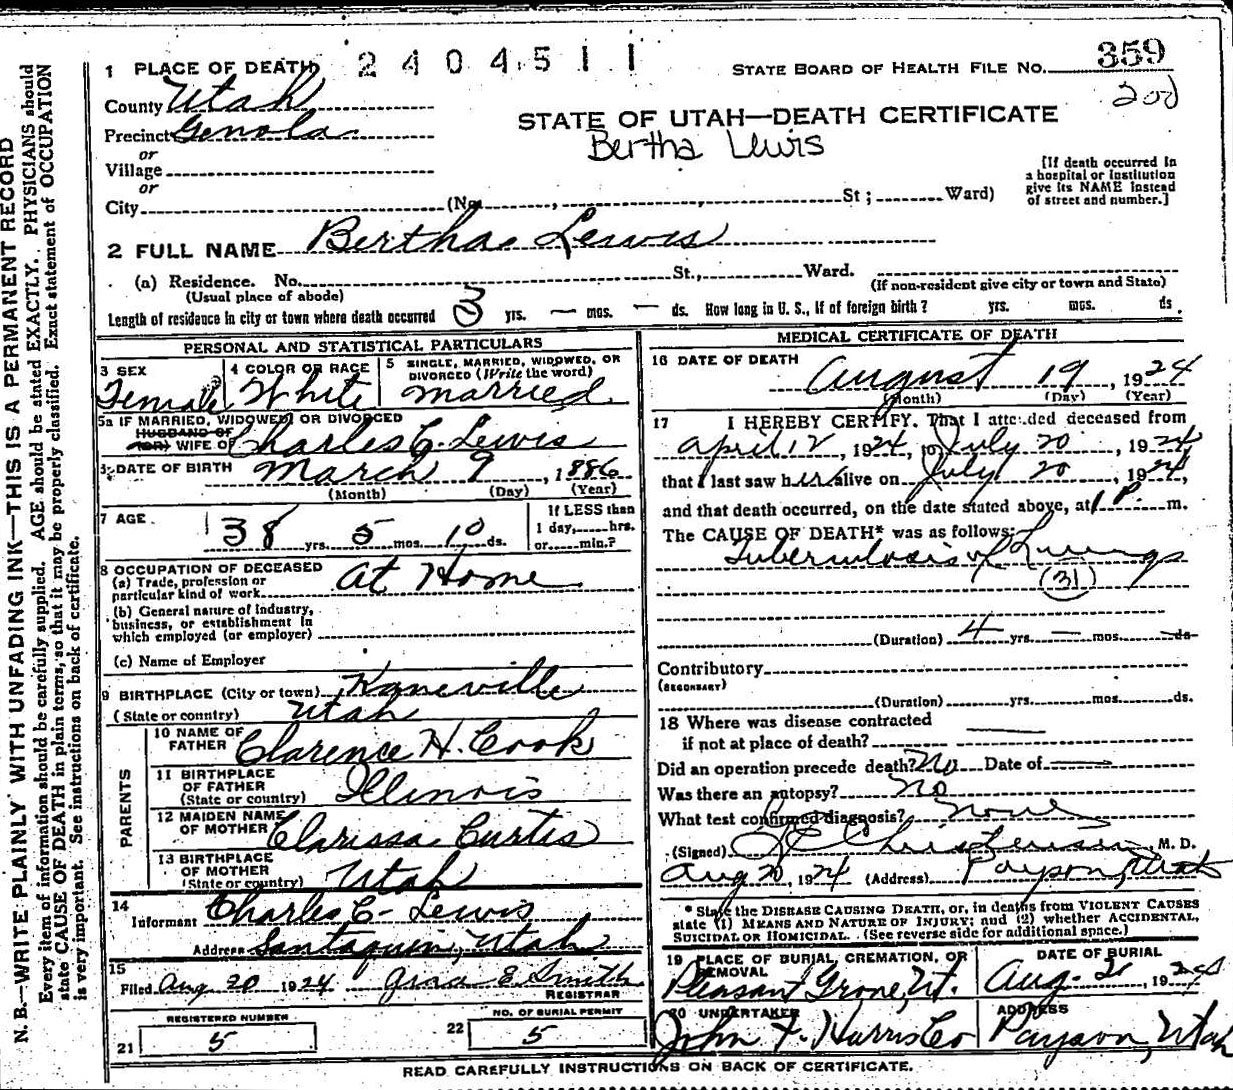 2404511
359
1 PLACE OF DEATH
STATE BOARD OF HEALTH FILE NO.
200
County Utah
STATE OF UTAH—DEATH CERTIFICATE
Precinct Genola
Bertha Lewis
or
Village
or
City (No. , St ; Ward)
[If death occurred in
a hospital or institution
give its NAME instead
of street and number.]
2 FULL NAME Bertha Lewis
(a) Residence. No. St., Ward.
(Usual place of abode)
(If non-resident give city or town and State)
Length of residence in city or town where death occurred 3 yrs. — mos. — ds. How long in U. S., if of foreign birth? yrs. mos. ds
PERSONAL AND STATISTICAL PARTICULARS
3 SEX
Female
4 COLOR OR RACE
White
5 SINGLE, MARRIED, WIDOWED, OR
DIVORCED (Write the word)
Married
5a IF MARRIED, WIDOWED OR DIVORCED
HUSBAND OF
(OR) WIFE OF Charles C. Lewis
DATE OF BIRTH March 9, 1886
(Month) (Day) (Year)
7 AGE
38 yrs. 5 mos. 10 ds.
If LESS than
1 day, hrs.
or min.?
8 OCCUPATION OF DECEASED
(a) Trade, profession or
particular kind of work At Home
(b) General nature of industry,
business, or establishment in
which employed (or employer)
(c) Name of Employer
9 BIRTHPLACE (City or town) Kaneville
(State or country) Utah
PARENTS
10 NAME OF
FATHER Clarence H. Cook
11 BIRTHPLACE
OF FATHER
(State or country) Illinois
12 MAIDEN NAME
OF MOTHER Clarissa Curtis
13 BIRTHPLACE
OF MOTHER
(State or country) Utah
14
Informant Charles C. Lewis
Address Santaquin, Utah
15
Filed Aug 20 1924 Smith
REGISTRAR
REGISTERED NUMBER
21 5
NO. OF BURIAL PERMIT
22 5
MEDICAL CERTIFICATE OF DEATH
16 DATE OF DEATH
August 19, 1924
(Month) (Day) (Year)
17 I HEREBY CERTIFY, That I attended deceased from
April 12, 1924, to July 20, 1924,
that I last saw her alive on July 20, 1924,
and that death occurred, on the date stated above, at 1 P. m.
The CAUSE OF DEATH* was as follows:
Tuberculosis of Lungs
31
(Duration) 4 yrs. — mos. — ds
Contributory
(SECONDARY)
(Duration) yrs. mos. ds.
18 Where was disease contracted
if not at place of death?
Did an operation precede death? No Date of
Was there an autopsy? No
What test confirmed diagnosis? None
(Signed) Christensen, M. D.
Aug 20, 1924 (Address) Payson, Utah
* State the DISEASE CAUSING DEATH, or, in deaths from VIOLENT CAUSES
state (1) MEANS AND NATURE OF INJURY; and (2) whether ACCIDENTAL,
SUICIDAL OR HOMICIDAL. (See reverse side for additional space.)
19 PLACE OF BURIAL, CREMATION, OR
REMOVAL
Pleasant Grove, Ut.
DATE OF BURIAL
Aug. 21, 1924
20 UNDERTAKER
John F. Harris Co
ADDRESS
Payson, Utah
READ CAREFULLY INSTRUCTIONS ON BACK OF CERTIFICATE.
N. B.—WRITE PLAINLY WITH UNFADING INK—THIS IS A PERMANENT RECORD
Every item of information should be carefully supplied. AGE should be stated EXACTLY. PHYSICIANS should
state CAUSE OF DEATH in plain terms, so that it may be properly classified. Exact statement of OCCUPATION
is very important. See instructions on back of certificate.